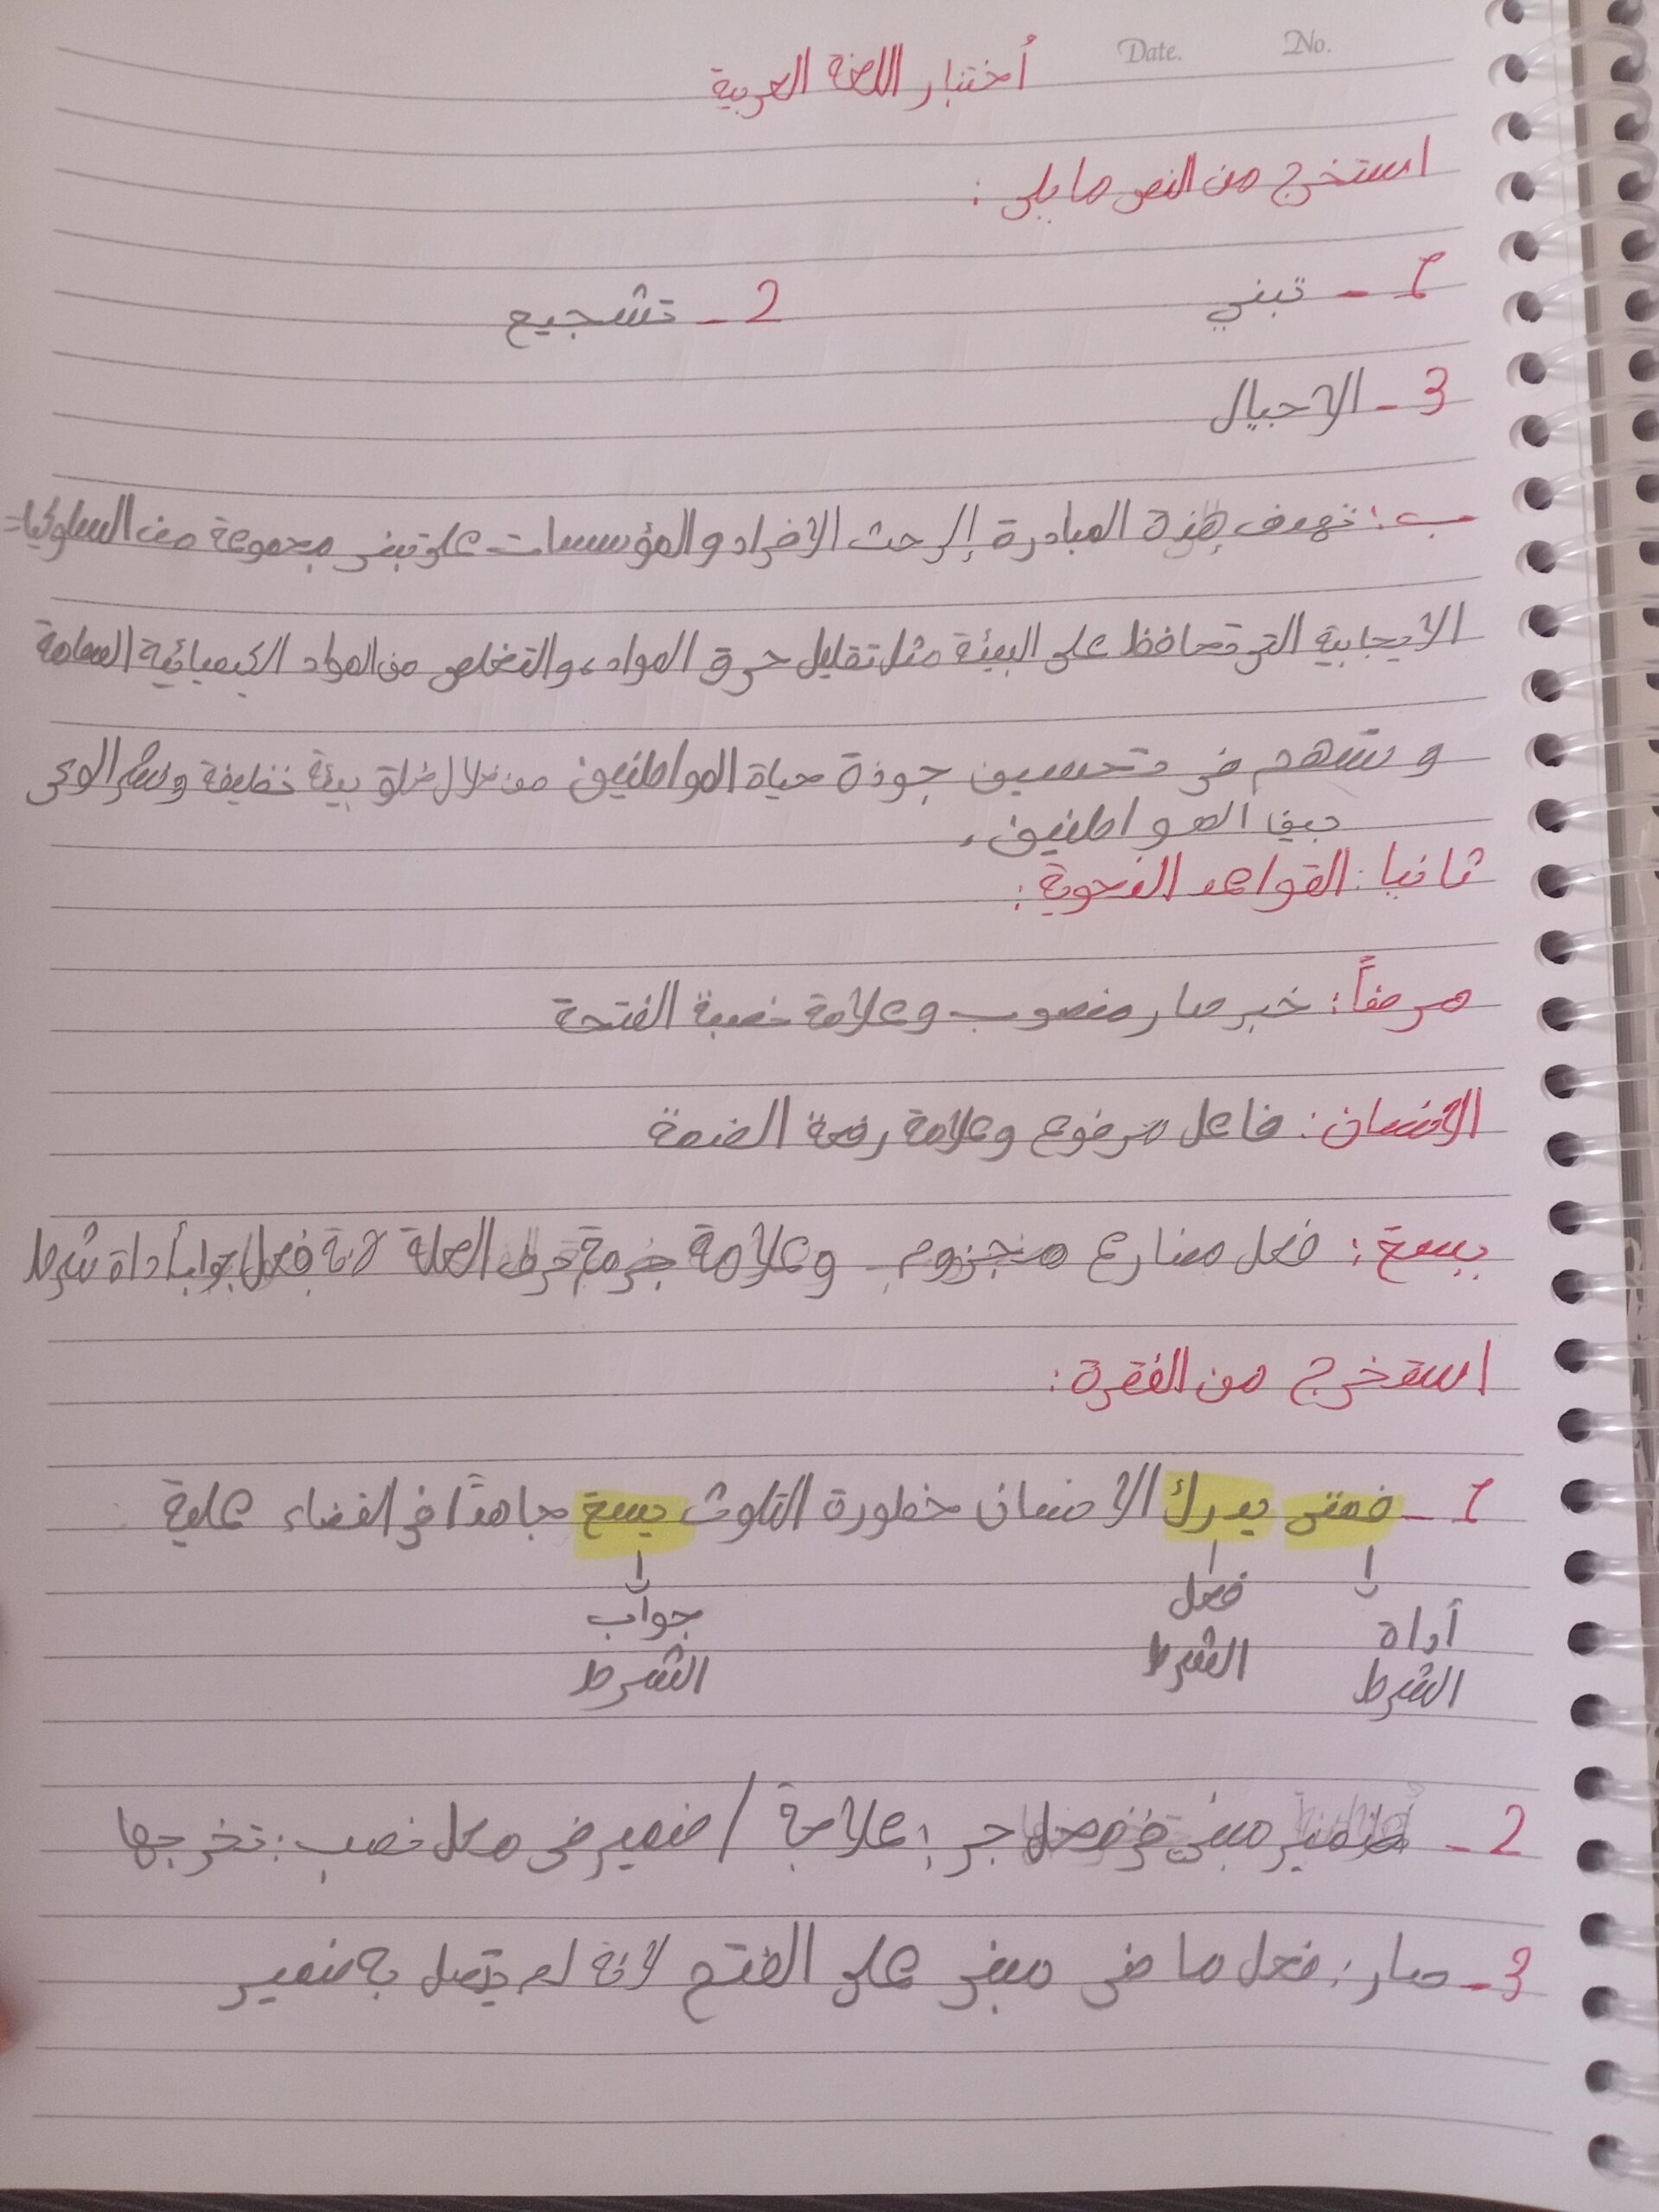 Date. No.
أختبار اللغة العربية
استخرج من النص ما يلي :
1 - تبني 2 - تشجيع
3 - الاجيال
ب : تهدف هذة المبادرة إلى حث الافراد والمؤسسات على تبني مجموعة من السلوكيا=
الايجابية التي تحافظ على البيئة مثل تقليل حرق المواد، والتخلص من المواد الكيميائية السامة
وتسهم في تحسين جودة حياة المواطنين من خلال خلق بيئة نظيفة ونشر الوعي
بين المواطنين.
ثانيا : القواعد النحوية :
مرضاً : خبر صار منصوب وعلامة نصبة الفتحة
الانسان : فاعل مرفوع وعلامة رفعة الضمة
يسع : فعل مضارع مجزوم وعلامة جزمة حرف العلة لانة فعل جواب أداة شرط
استخرج من الفقرة :
1 - فمتى يدرك الانسان خطورة التلوث يسع جاهدًا في القضاء علية
أداة الشرط فعل الشرط جواب الشرط
2 - ضمير مبني في محل جر : علامة / ضمير في محل نصب : تخرجها
3 - صار : فعل ماضي مبني على الفتح لانة لم يتصل به ضمير